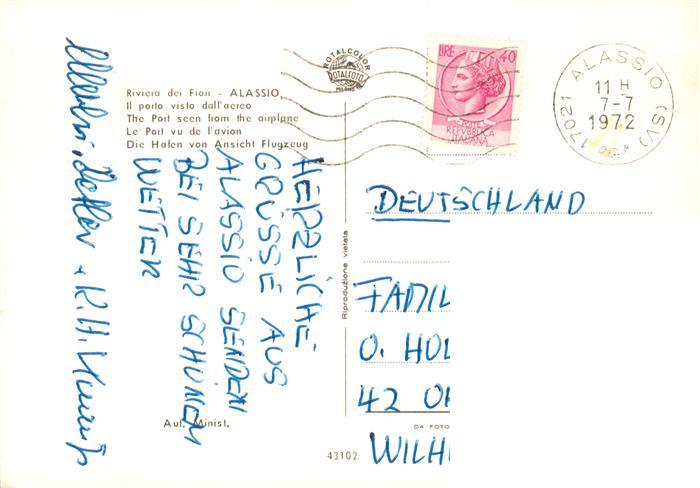 Riviera dei Fiori - ALASSIO
Il porto visto dall'aereo
The Port seen from the airplane
Le Port vu de l'avion
Die Hafen von Ansicht Flugzeug
ROTALCOLOR
ROTALFOTO
MILANO
LIRE 40
POSTE
REPVBBLICA
ITALIANA
17021 ALASSIO (SV)
11 H
7-7
1972
HERZLICHE
GRÜSSE AUS
ALASSIO SENDEN
BEI SEHR SCHÖNEM
WETTER
Detlev + K.H.
DEUTSCHLAND
FAMIL
O. HOL
42 O
WILH
Riproduzione vietata
Aut. Minist.
43102
DA FOTO